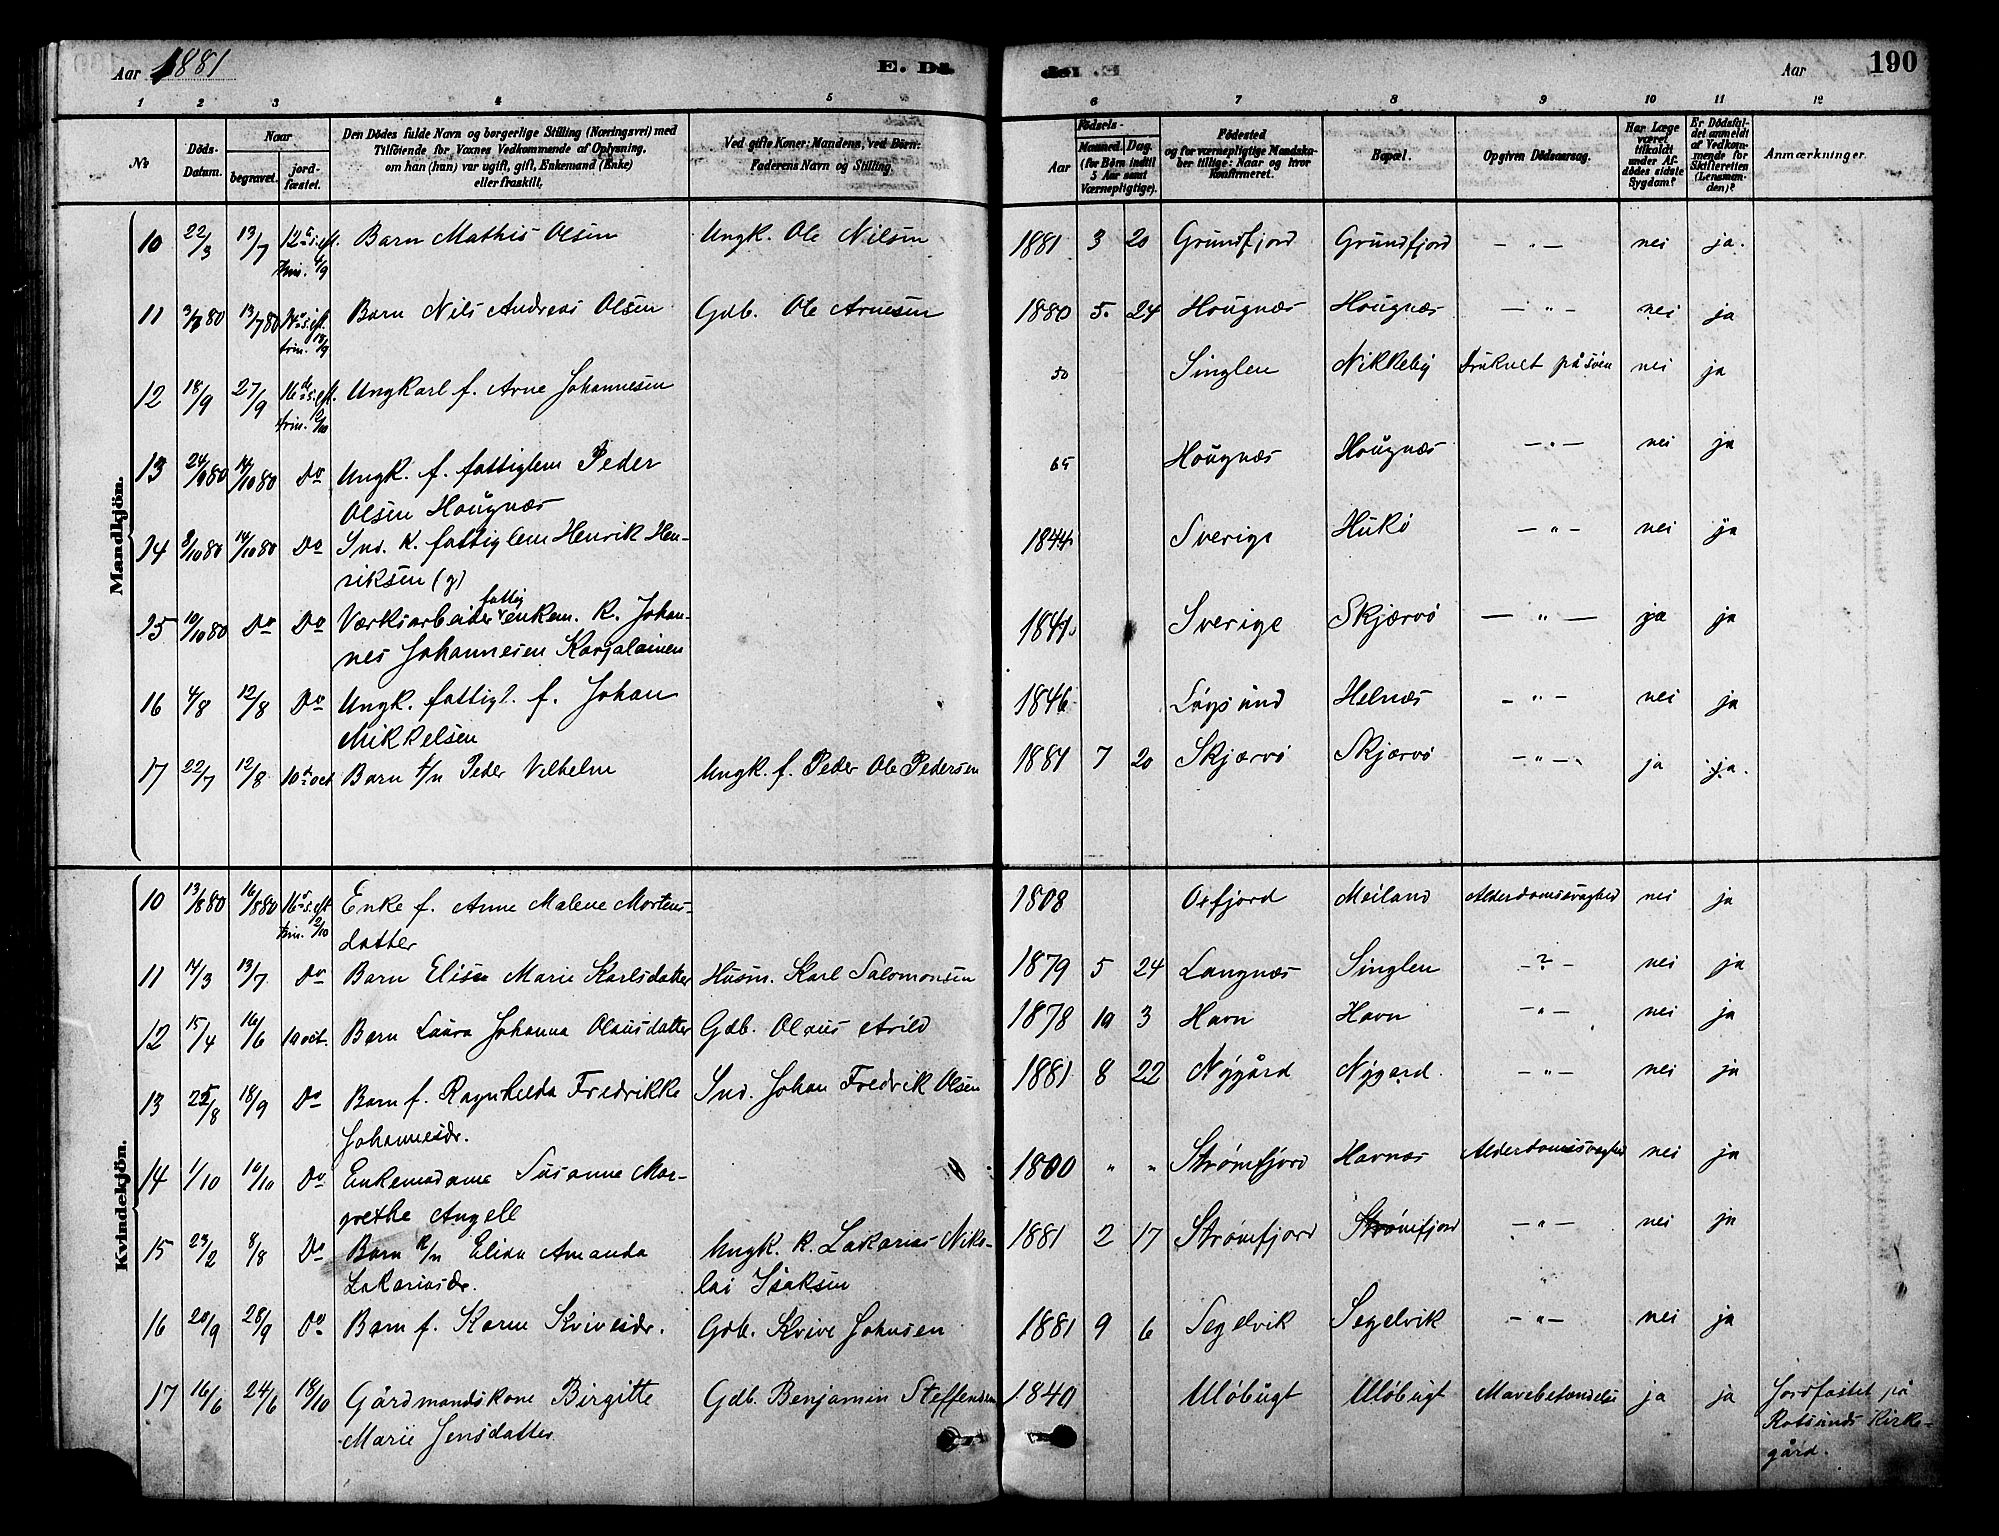 Aar 1881
E. Dö
del
Aar
190
1 2 3 4 5 6 7 8 9 10 11 12
No
Döds-Datum.
Naar
begravet.
jord-fæstet.
Den Dödes fulde Navn og borgerlige Stilling (Næringsvei) med
Tilföiende for Voxnes Vedkommende af Oplysning,
om han (hun) var ugift, gift, Enkemand (Enke)
eller fraskilt.
Ved gifte Koner: Mandens, ved Börn:
Faderens Navn og Stilling.
Födsels-
Aar
Maaned. Dag.
(for Börn indtil
5 Aar samt
Værnepligtige).
Födested
og for værnepligtige Mandska-
ber tillige: Naar og hvor
Konfirmeret.
Bopæl.
Opgiven Dödsaarsag.
Har Læge
været
tilkaldt
under Af-
dödes sidste
Sygdom?
Er Dödsfal-
det anmeldt
af Vedkom-
mende for
Skifteretten
(Lensman-
den)?
Anmærkninger.
Mandkjön.
10 22/3 13/7 12te s. eft. trin. 4/9 Barn Mathis Olsen Ungk. Ole Nilsen 1881 3 20 Grundfjord Grundfjord — " — nei ja.
11 3/80 13/7 80 Barn Nils Andreas Olsen Gdb. Ole Arnesen 1880 5. 24 Hougnæs Hougnæs — " — nei ja
12 18/9 27/9 16de s. eft. trin. 2/10 Ungkarl f. Arne Johannesen 50 Singlen Nikkeby Druknet på søen nei ja
13 24/9 80 14/10 80 Do Ungk. f. fattiglem Peder
Olsen Hougnæs 65 Hougnæs Hougnæs — " — nei ja
14 8/10 80 14/10 80 Do Ind. k. fattiglem Henrik Hen-
riksen (g) 1844 Sverige Hukø — " — nei ja
15 10/10 80 Do Do Værksarbeider fattig enkem. k. Johan-
nes Johannesen Karjalainen 1841 Sverige Skjærvø — " — ja ja
16 4/8 12/8 Do Ungk. fattigl. f. Johan
Mikkelsen 1846 Løgsund Helnæs — " — nei ja
17 22/7 12/8 10de oct Barn f/n Peder Vilhelm Ungk. f. Peder Ole Pedersen 1881 7 20 Skjærvø Skjærvø — " — ja ja.
Kvindekjön.
10 13/8 80 16/8 80 16de s. eft. trin. 2/10 Enke f. Anne Malene Mortens-
datter 1808 Oxfjord Meiland Alderdomssvaghed nei ja
11 14/3 13/7 Do Barn Elise Marie Karlsdatter Husm. Karl Salomonsen 1879 5 24 Langnæs Singlen — ? — nei ja
12 15/4 16/6 10 oct. Barn Laura Johanna Olausdatter Gdb. Olaus Arild 1878 10 3 Havn Havn — " — nei ja
13 25/8 18/9 Do Barn f. Ragnhilda Fredrikke
Johannesdr. Ind. Johan Fredrik Olsen 1881 8 22 Nygård Nygard — " — nei ja
14 1/10 10/10 Do Enkemadame Susanne Mar-
grethe Angell 1800 " " Strømfjord Havnæs Alderdomssvaghed nei ja
15 23/2 8/8 Do Barn k/n Elida Amanda
Zakariasdr. Ungk. k. Zakarias Niko-
lai Isaksen 1881 2 17 Strømfjord Strømfjord — " — nei ja
16 20/9 28/9 Do Barn f. Karen Kvivesdr. Gdb. Kvive Johnsen 1881 9 6 Segelvik Segelvik — " — nei ja
17 16/6 24/6 18/10 Gårdmandskone Birgitte
Marie Jensdatter Gdb. Benjamin Steffensen 1840 Uløbugt Uløbugt Mavebetændelse ja ja Jordfæstet på
Rotsunds Kirke-
gård.